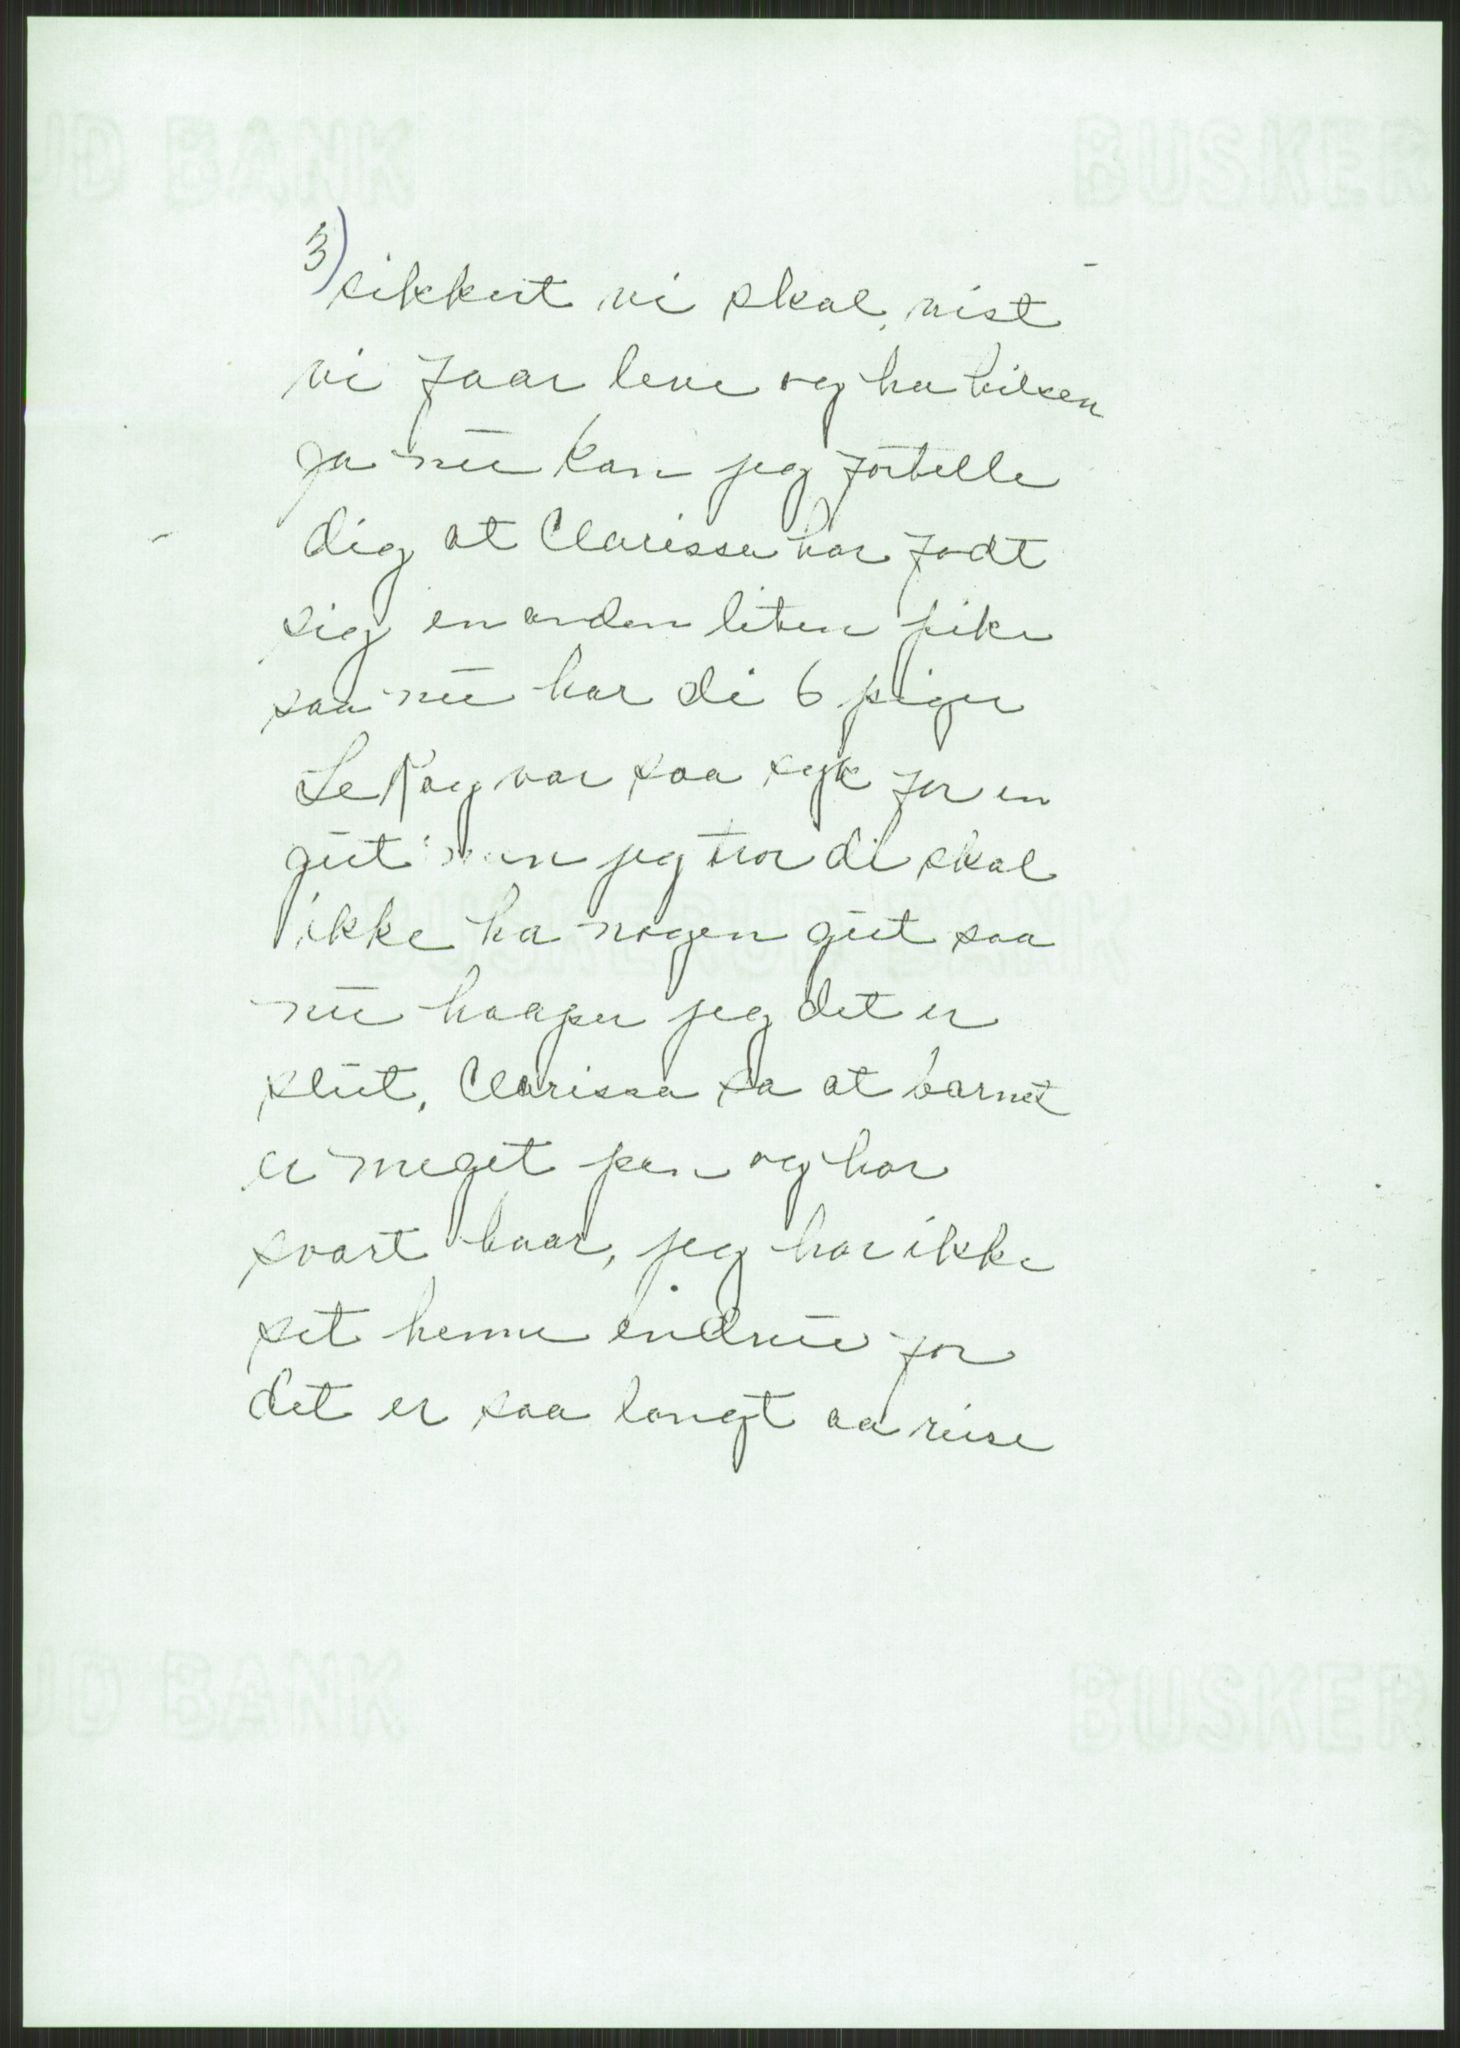 3)
sikkert vi skal, vist
vi faar leve og ha hilsen
ja nu kan jeg fortelle
dig at Clarissa har fodt
sig en anden liten pike
saa nu har di 6 piger
LeRoy var saa syk for en
gut men jeg tror di skal
ikke ha nogen gut saa
nu haaper jeg det er
slut, Clarissa sa at barnet
er meget pen og har
svart haar, jeg har ikke
set henne endnu for
det er saa langt aa reise
UD BANK BUSKER
BUSKERUD BANK
UD BANK BUSKER